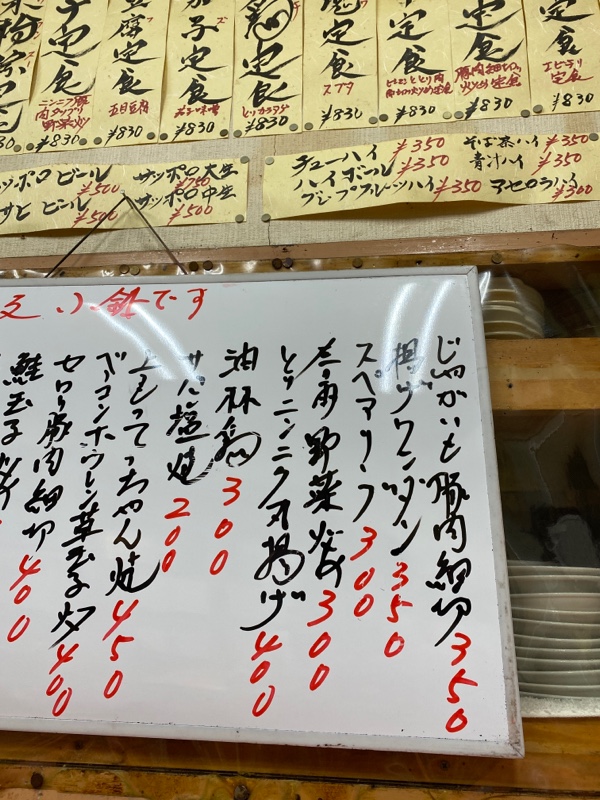 定食
ニンニク豚
肉タップリ
野菜炒
¥830
定食
五目豆腐
¥830
茄子定食
¥830
定食
とりカラアゲ
¥830
定食
スブタ
¥830
定食
¥830
定食
豚肉細切り
定食
¥830
定食
エビチリ
定食
¥830
ッポロ ビール ¥500
サヒ ビール ¥500
サッポロ 大生 ¥750
サッポロ 中生 ¥500
チューハイ ¥350
ハイボール ¥350
グレープフルーツハイ ¥350
そば茶ハイ ¥350
青汁ハイ ¥350
アセロラハイ ¥300
小鉢です
じゃがいも豚肉細切 350
揚げワンタン 350
スペアリーブ 300
野菜炒 300
とりニンニク 揚げ 400
油淋鶏 300
サバ塩焼 200
ちゃん焼 450
ベーコンホーレン草玉子炒 400
セロリ豚肉細切 400
鮭玉子炒